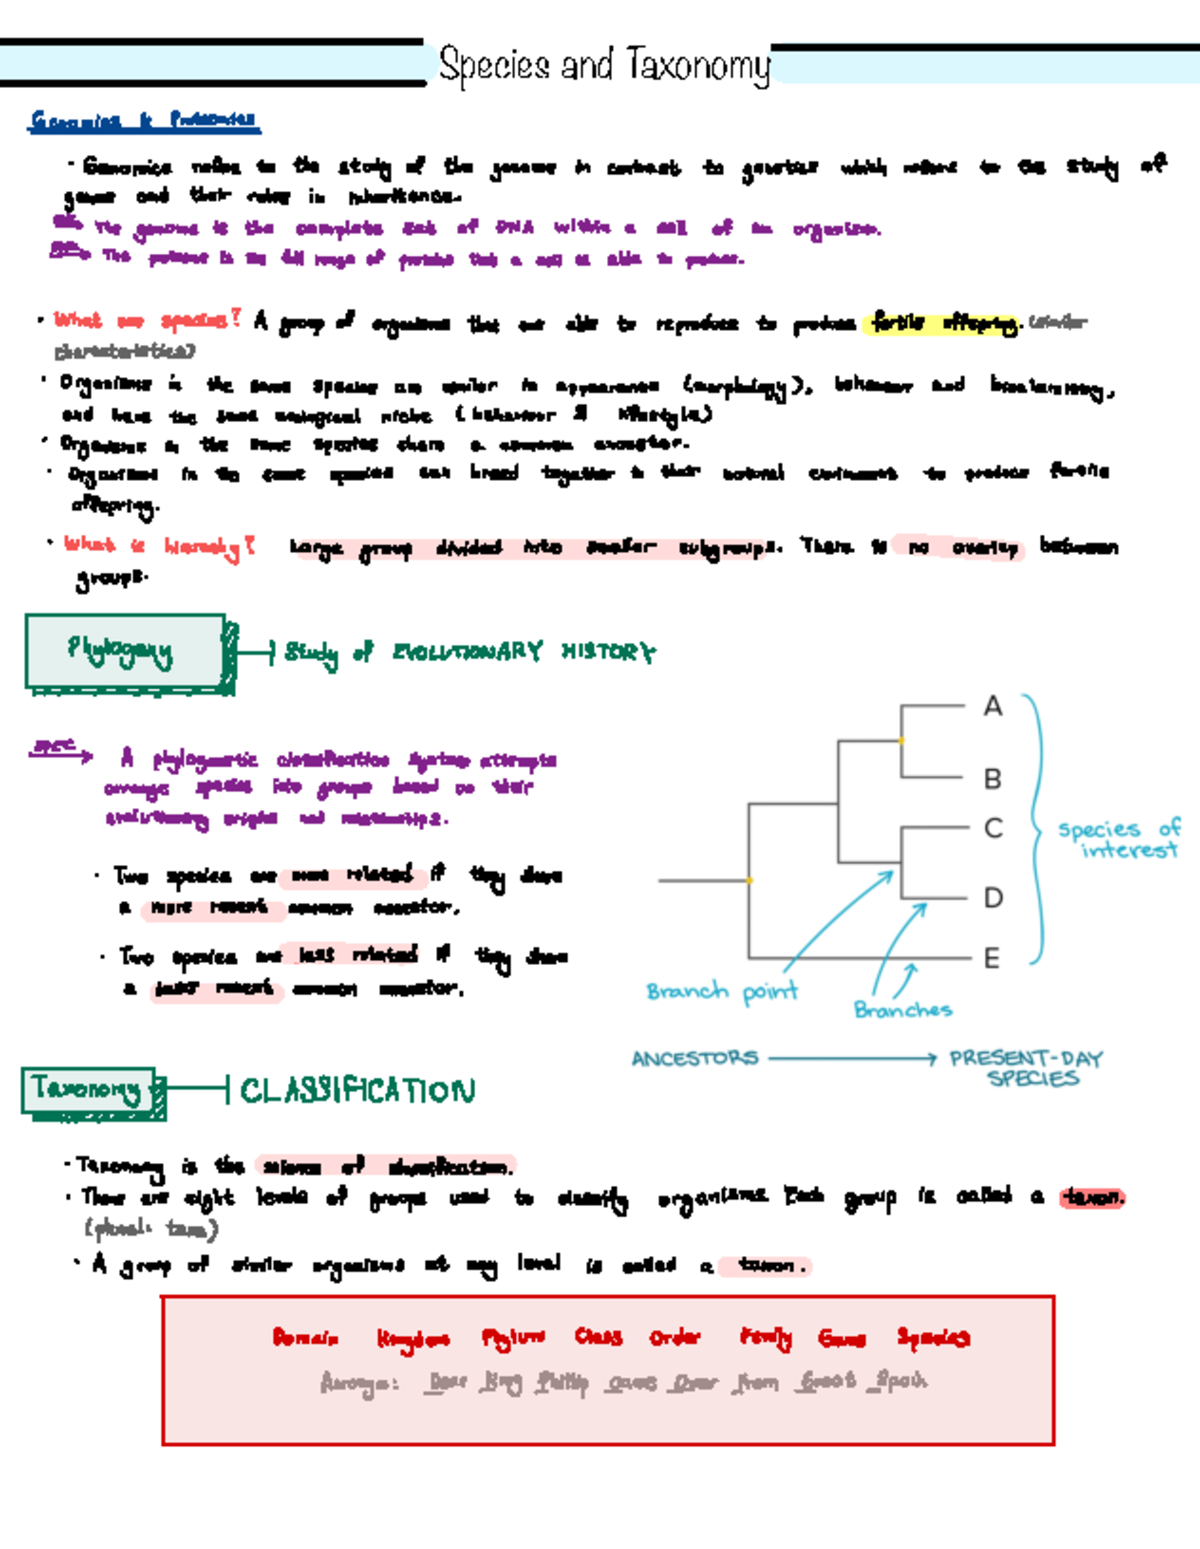 Species and Taxonomy
Genomics & Proteomics
· Genomics refers to the study of the genome in contrast to genetics which refers to the study of
genes and their roles in inheritance.
The genome is the complete set of DNA within a cell of an organism.
The proteome is the full range of proteins that a cell is able to produce.
· What are species? A group of organisms that are able to reproduce to produce fertile offspring. (similar
characteristics)
· Organisms in the same species are similar in appearance (morphology), behaviour and biochemistry,
and have the same ecological niche (behaviour & lifestyle)
· Organisms in the same species share a common ancestor.
· Organisms in the same species can breed together in their natural environment to produce fertile
offspring.
· What is hierarchy? Large group divided into smaller subgroups. There is no overlap between
groups.
Phylogeny
Study of EVOLUTIONARY HISTORY
spec
A phylogenetic classification system attempts
arrange species into groups based on their
evolutionary origins and relationships.
· Two species are more related if they share
a more recent common ancestor.
· Two species are less related if they share
a less recent common ancestor.
A
B
C
D
E
species of
interest
Branch point
Branches
ANCESTORS
PRESENT-DAY
SPECIES
Taxonomy
CLASSIFICATION
· Taxonomy is the science of classification.
· There are eight levels of groups used to classify organisms Each group is called a taxon.
(plural: taxa)
· A group of similar organisms at any level is called a taxon.
Domain Kingdom Phylum Class Order Family Genus Species
Dear King Philip Came Over From Great Spain